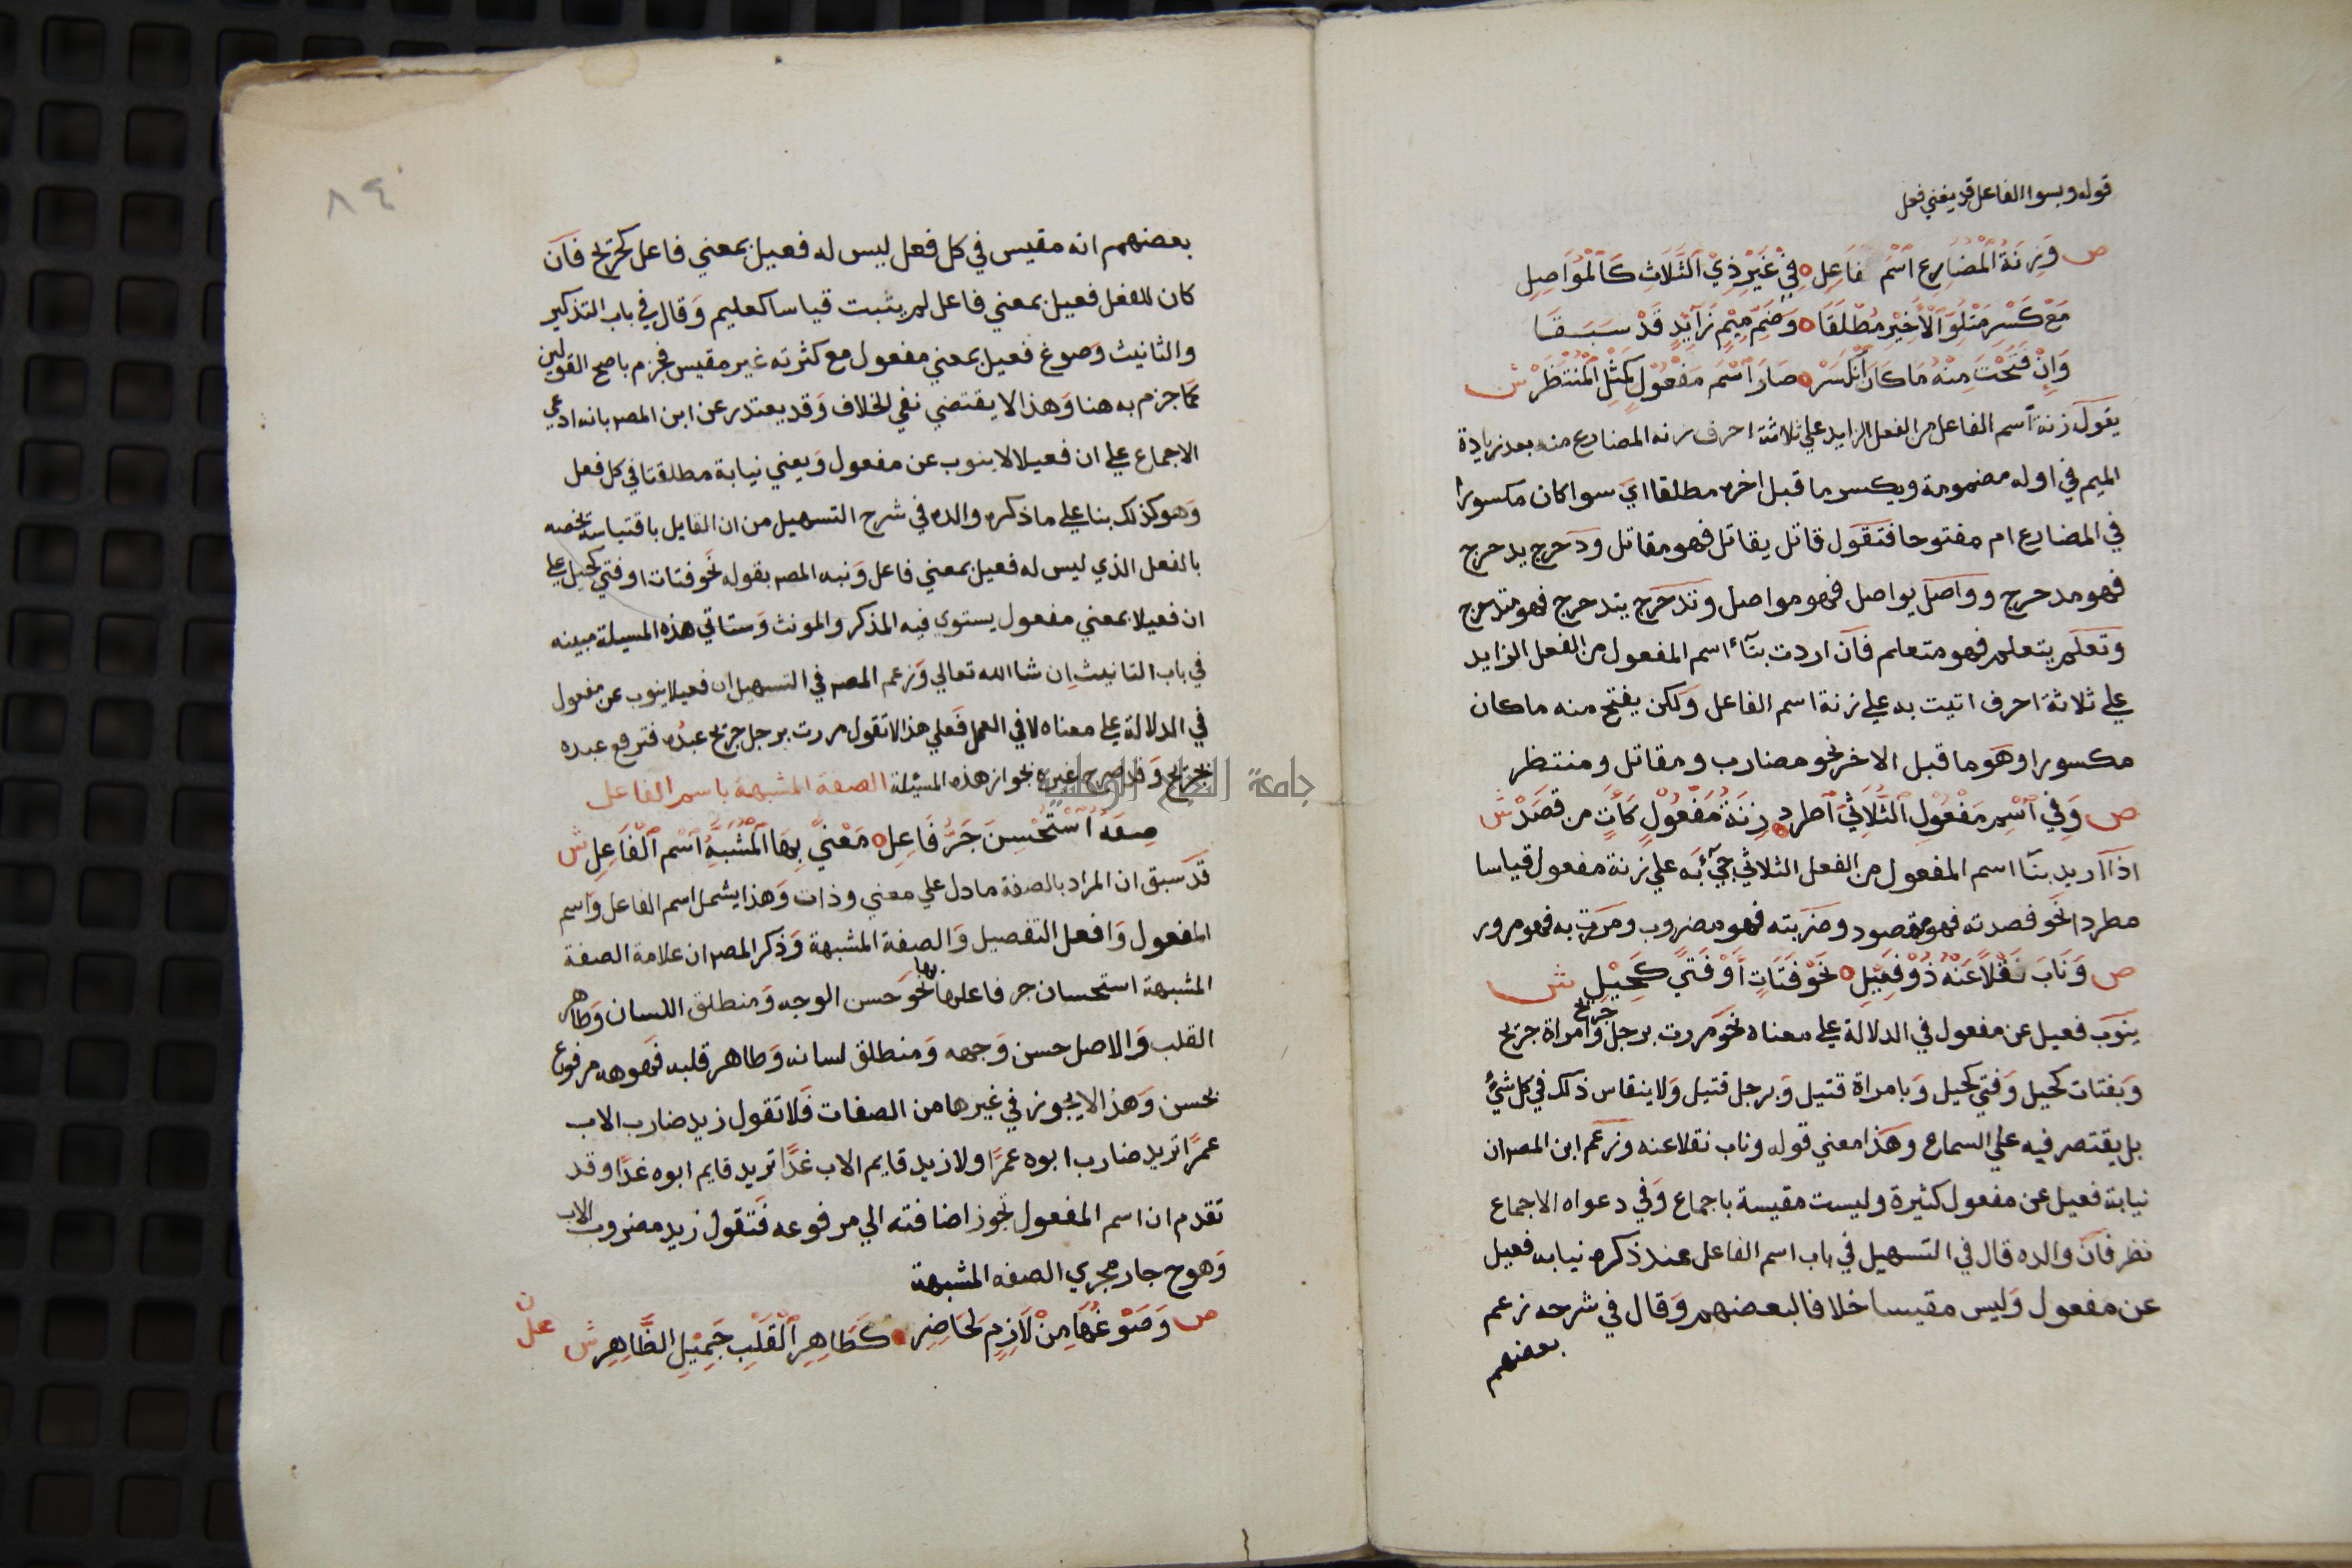 قوله وبسوا الفاعل قد يغني فعل
ص وَزِنَةُ الْمُضَارِعِ اسْمُ فَاعِلِ ٥ فِيْ غَيْرِ ذِيْ الثَّلَاثِ كَالْمُوَاصِلِ
مَعْ كَسْرِ مَتْلُوِّ الْأَخِيْرِ مُطْلَقَا ٥ وَضَمِّ مِيْمٍ زَآئِدٍ قَدْ سَبَقَا
وَإِنْ فَتَحْتَ مِنْهُ مَا كَانَ انْكَسَرْ ٥ صَارَ اسْمَ مَفْعُوْلٍ كَمِثْلِ الْمُنْتَظَرْ ش
يقول زنة اسم الفاعل من الفعل الزايد علي ثلاثة احرف زنه المضارع منه بعد زيادة
الميم في اوله مضمومة ويكسر ما قبل اخره مطلقا اي سوا كان مكسورا
في المضارع ام مفتوحا فتقول قاتل يقاتل فهو مقاتل ودحرج يدحرج
فهو مدحرج وواصل يواصل فهو مواصل وتدحرج يتدحرج فهو متدحرج
وتعلم يتعلم فهو متعلم فان اردت بنآء اسم المفعول من الفعل الزايد
علي ثلاثة احرف اتيت به علي زنة اسم الفاعل ولكن يفتح منه ما كان
مكسورا وهو ما قبل الاخر نحو مضارب ومقاتل ومنتظر
ص وَفِي اسْمِ مَفْعُوْلِ الثُّلَاثِيِّ اطرد ٥ زِنَةُ مَفْعُوْلٍ كَآتٍ من قصَدْ ش
اذا اريد بنا اسم المفعول من الفعل الثلاثي جيء به علي زنة مفعول قياسا
مطردا نحو قصدته فهو مقصود وضربته فهو مضروب ومررت به فهو مرور
ص وَنَابَ نَقْلًا عَنْهُ ذُوْ فَعِيْلِ ٥ نَحْوُ فَتَاتٍ أَوْ فَتًى كَحِيْلِ ش
ينوب فعيل عن مفعول في الدلالة علي معناه نحو مررت برجل جريح وامراة جريح
وبفتات كحيل وفتي كحيل وبامراة قتيل وبرجل قتيل ولا ينقاس ذلك في كل شيء
بل يقتصر فيه علي السماع وهذا معني قوله وناب نقلا عنه وزعم ابن المصر ان
نيابة فعيل عن مفعول كثيرة وليست مقيسة باجماع وفي دعواه الاجماع
نظر فان والده قال في التسهيل في باب اسم الفاعل عند ذكره نيابه فعيل
عن مفعول وليس مقيسا خلافا لبعضهم وقال في شرحه زعم
بعضهم
٨٤
بعضهم انه مقيس في كل فعل ليس له فعيل بمعني فاعل كجريح فان
كان للفعل فعيل بمعني فاعل لم يثبت قياسا كعليم وقال في باب التذكير
والتانيث وصوغ فعيل بمعني مفعول مع كثرته غير مقيس فجزم باصح القولين
كما جزم به هنا وهذا لا يقتضي نفي الخلاف وقد يعتدر عن ابن المصر بانه ادعي
الاجماع علي ان فعيلا لا ينوب عن مفعول ويعني نيابة مطلقتا في كل فعل
وهو كذلك بنا علي ما ذكره والده في شرح التسهيل من ان القايل باقتياسه يخصه
بالفعل الذي ليس له فعيل بمعني فاعل ونبه المصر بقوله نحو فتات او فتي كحيل علي
ان فعيلا بمعني مفعول يستوي فيه المذكر والمونث وستاتي هذه المسيلة مبينه
في باب التانيث ان شا الله تعالي وزعم المصر في التسهيل ان فعيلا ينوب عن مفعول
في الدلالة علي معناه لا في العمل فعلي هذا لا تقول مررت برجل جريح عبده فترفع عبده
بجريح وقد صرح غيره بجواز هذه المسئلة الصفة المشبهة باسم الفاعل
صِفَةٌ اُسْتُحْسِنَ جَرُّ فَاعِلِ ٥ مَعْنًي بِهَا الْمُشْبِهَةُ اسْمَ الْفَاعِلِ ش
قد سبق ان المراد بالصفة ما دل علي معني وذات وهذا يشمل اسم الفاعل واسم
المفعول وافعل التفضيل والصفة المشبهة وذكر المصر ان علامة الصفة
المشبهة استحسان جر فاعلها بها نحو حسن الوجه ومنطلق اللسان وطاهر
القلب والاصل حسن وجهه ومنطلق لسانه وطاهر قلبه فوجهه مرفوع
بحسن وهذا لا يجوز في غيرها من الصفات فلا تقول زيد ضارب الاب
عمرًا تريد ضارب ابوه عمرًا ولا زيد قايم الاب غدًا تريد قايم ابوه غدًا وقد
تقدم ان اسم المفعول تجوز اضافته الي مرفوعه فتقول زيد مضروب الاب
وهو ح جار مجري الصفه المشبهة
ص وَصَوْغُهَا مِنْ لَازِمٍ لِحَاضِرِ ٥ كَطَاهِرِ الْقَلْبِ جَمِيْلِ الظَّاهِرِ ش
جامعة النجاح الوطنية